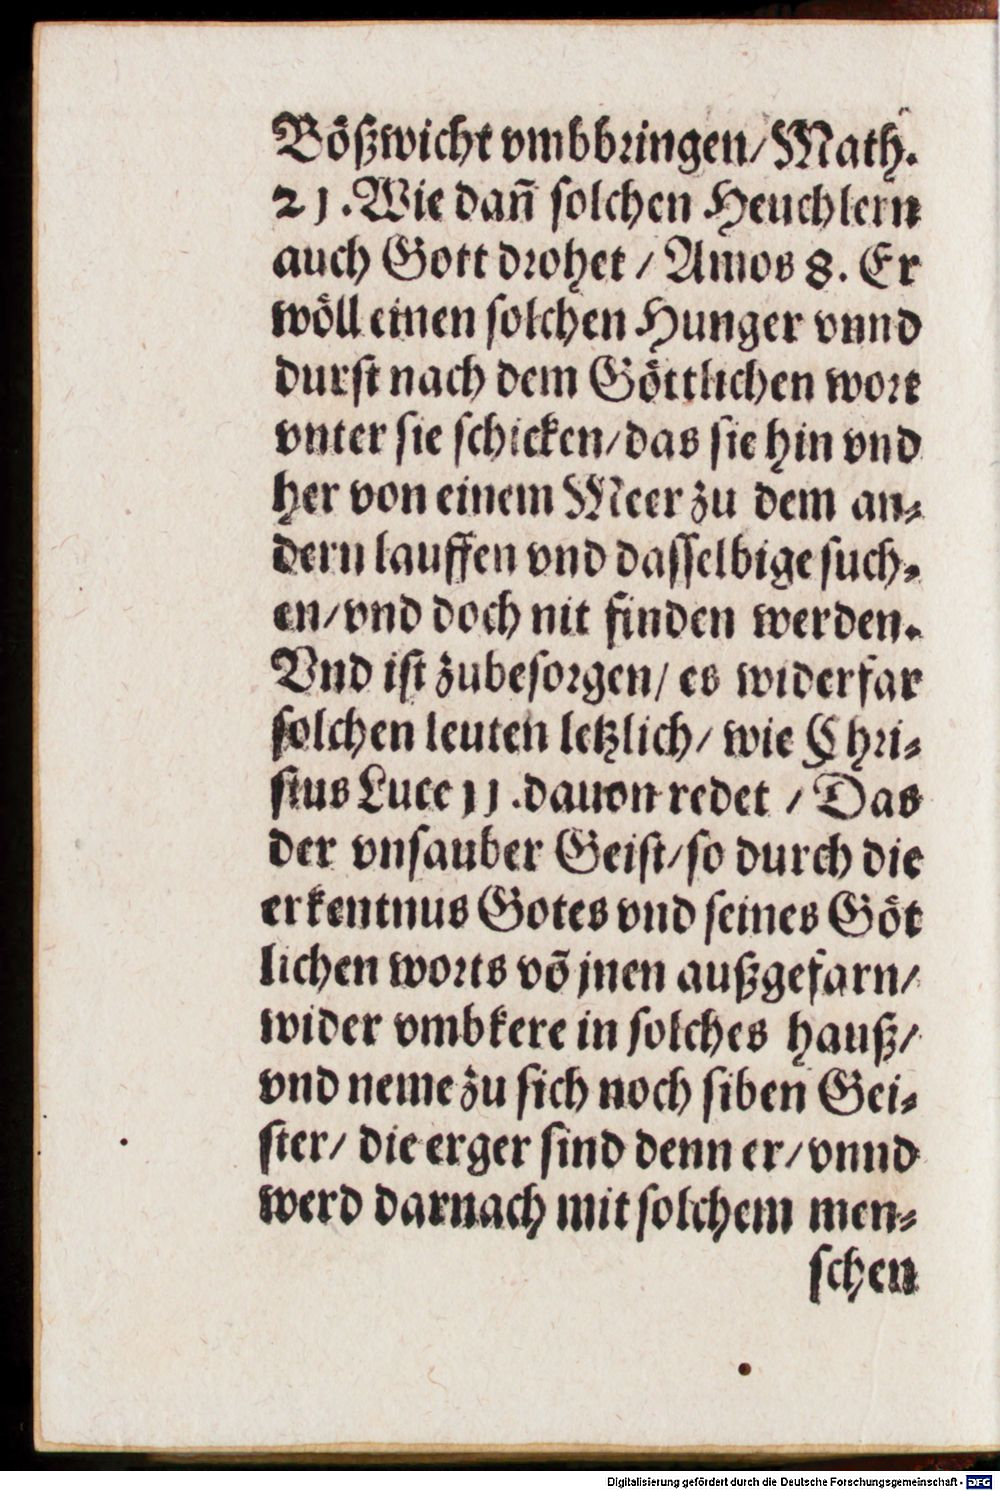 Bößwicht vmbbringen/ Math.
21. Wie dañ solchen Heuchlern
auch Gott drohet / Amos 8. Er
wöll einen solchen Hunger vnnd
durst nach dem Göttlichen wort
vnter sie schicken/ das sie hin vnd
her von einem Meer zu dem an-
dern lauffen vnd dasselbige such-
en/ vnd doch nit finden werden.
Vnd ist zubesorgen/ es widerfar
solchen leuten letzlich/ wie Chri-
stus Luce 11. dauon redet / Das
der vnsauber Geist/ so durch die
erkentnus Gotes vnd seines Göt
lichen worts võ jnen außgefarn/
wider vmbkere in solches hauß/
vnd neme zu sich noch siben Gei-
ster/ die erger sind denn er/ vnnd
werd darnach mit solchem men-
schen
Digitalisierung gefördert durch die Deutsche Forschungsgemeinschaft - DFG